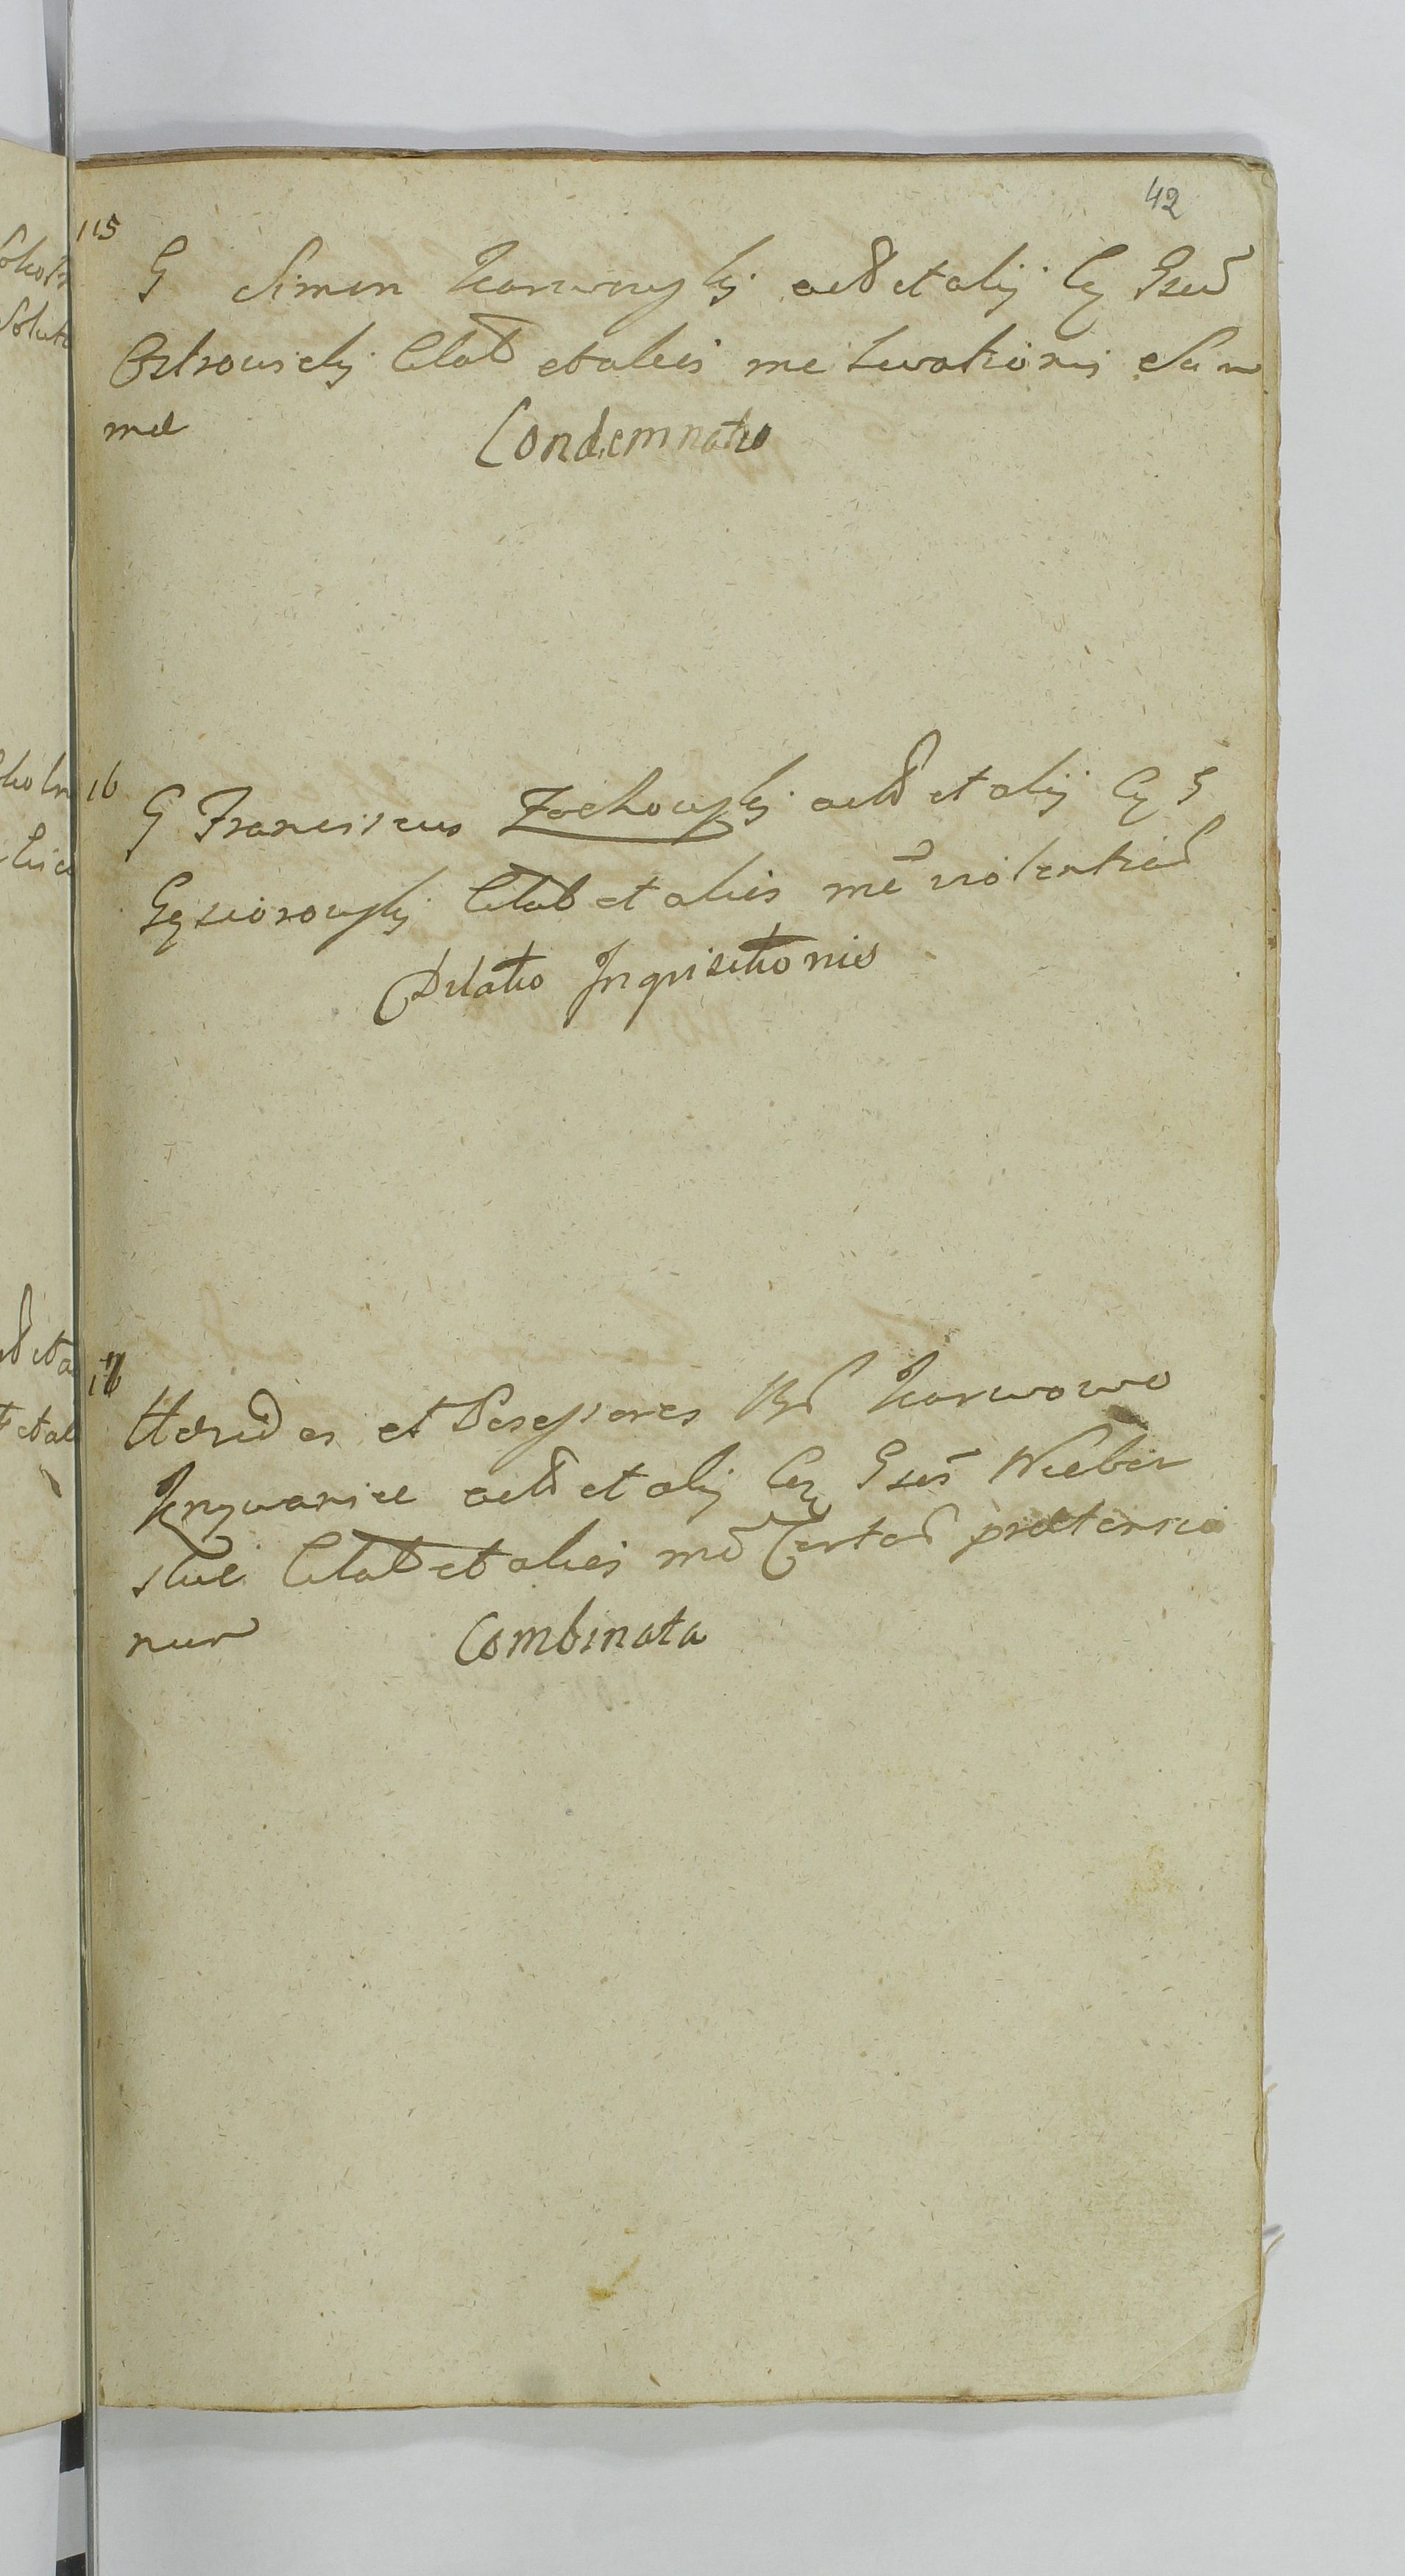 42
115
G Simon Karwowskj act et alij Cq Gsum
Ostrowskj Citat et aliis me Levationis Sum
mae
Condemnatio
16
G Franciscus Zochowskj act et alij Cq G
Gąsiorowskj Citat et aliis me violentias
Dilatio Inquisitionis
17
Heredes et Possessores Karwowo
Krzywanice act et alij Cq Gsos Wieber
skie Citat et aliis me Certas praetensio
num
Combinata